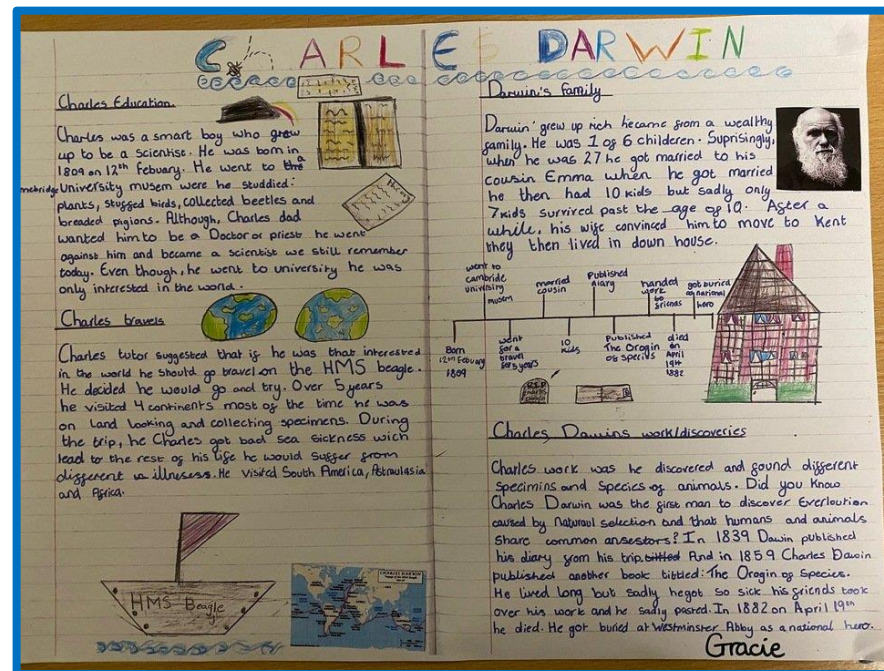 CHARLES DARWIN
Charles Education
Charles was a smart boy who grew
up to be a scientist. He was born in
1809 on 12th Febuary. He went to the a
University musem were he studdied:
plants, stuffed birds, collected beetles and
breaded pigions. Although, Charles dad
wanted him to be a Doctor or priest he went
against him and became a scientist we still remember
today. Even though, he went to university he was
only interested in the world.
Charles travels
Charles tutor suggested that if he was that interested
in the world he should go travel on the HMS beagle.
He decided he would go and try. Over 5 years
he visited 4 continents most of the time he was
on land looking and collecting specimens. During
the trip, he Charles got bad sea sickness wich
lead to the rest of his life he would suffer from
different illnesses. He visited South America, Astraulasia
and Africa.
HMS Beagle
CHARLES DARWIN
Darwin's family
Darwin grew up rich he came from a wealthy
family. He was 1 of 6 childeren. Suprisingly,
when he was 27 he got married to his
cousin Emma when he got married
he then had 10 kids but sadly only
7 kids survived past the age of 10. After a
while, his wife convinced him to move to Kent
they then lived in down house.
went to cambride university musem
married cousin
Published diary
handed work to friends
got buried as national hero
Born 12th Febuary 1809
went for a travel for 5 years
10 kids
Published The Orogin of specius
died on April 19th 1882
R.I.P
Charles Dawins work/discoveries
Charles work was he discovered and found different
specimins and species of animals. Did you know
Charles Darwin was the first man to discover Everloution
caused by Naturaul selection and that humans and animals
share common ansestors? In 1839 Dawin published
his diary from his trip. tittled And in 1859 Charles Dawin
published another book tittled: The Orogin of Species.
He lived long but sadly he got so sick his friends took
over his work and he sadly pasted. In 1882 on April 19th
he died. He got buried at Westminster Abby as a national hero.
Gracie